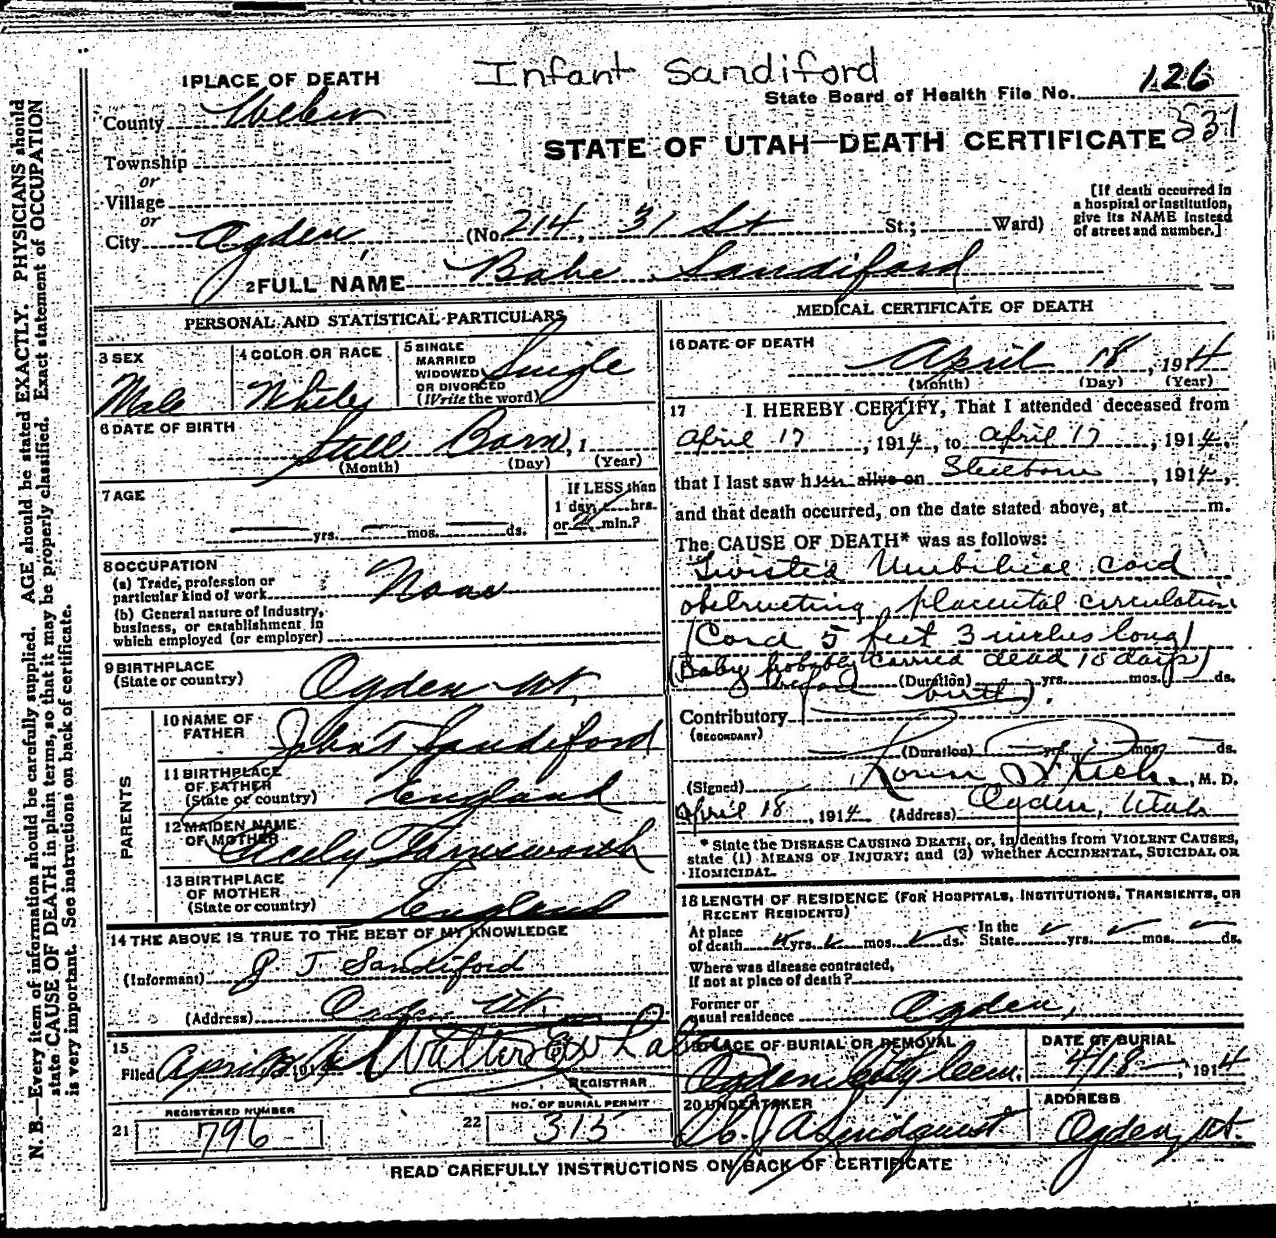 Infant Sandiford
State Board of Health File No. 126
STATE OF UTAH—DEATH CERTIFICATE 537
1 PLACE OF DEATH
County Weber
Township
or
Village
or
City Ogden (No. 214, 31 St St.; Ward)
[If death occurred in
a hospital or institution,
give its NAME instead
of street and number.]
2 FULL NAME Babe Sandiford
PERSONAL AND STATISTICAL PARTICULARS
3 SEX
Male
4 COLOR OR RACE
White
5 SINGLE
MARRIED
WIDOWED
OR DIVORCED
(Write the word)
Single
6 DATE OF BIRTH
Still Born, 1
(Month) (Day) (Year)
7 AGE
yrs. mos. ds.
If LESS than
1 day, hrs.
or min.?
8 OCCUPATION
(a) Trade, profession or
particular kind of work None
(b) General nature of Industry,
business, or establishment in
which employed (or employer)
9 BIRTHPLACE
(State or country) Ogden Ut.
PARENTS
10 NAME OF
FATHER John T Sandiford
11 BIRTHPLACE
OF FATHER
(State or country) England
12 MAIDEN NAME
OF MOTHER Cicely Farnsworth
13 BIRTHPLACE
OF MOTHER
(State or country) England
14 THE ABOVE IS TRUE TO THE BEST OF MY KNOWLEDGE
(Informant) J. T Sandiford
(Address) Ogden Ut.
15
Filed April 191 Walter E Whalen
REGISTRAR
REGISTERED NUMBER
21 796
NO. OF BURIAL PERMIT
22 315
MEDICAL CERTIFICATE OF DEATH
16 DATE OF DEATH
April 18, 1914
(Month) (Day) (Year)
17 I HEREBY CERTIFY, That I attended deceased from
April 17, 1914, to April 17, 1914,
that I last saw him alive on Stillborn, 1914,
and that death occurred, on the date stated above, at m.
The CAUSE OF DEATH* was as follows:
Twisted Umbilical cord
obstructing placental circulation
(Cord 5 feet 3 inches long)
(Baby probably carried dead 10 days
before birth).
(Duration) yrs. mos. ds.
Contributory
(SECONDARY)
(Duration) yrs. mos. ds.
(Signed) Rich, M. D.
April 18, 1914 (Address) Ogden, Utah
* State the DISEASE CAUSING DEATH, or, in deaths from VIOLENT CAUSES,
state (1) MEANS OF INJURY; and (2) whether ACCIDENTAL, SUICIDAL OR
HOMICIDAL.
18 LENGTH OF RESIDENCE (FOR HOSPITALS, INSTITUTIONS, TRANSIENTS, OR
RECENT RESIDENTS)
At place
of death yrs. mos. ds. In the
State yrs. mos. ds.
Where was disease contracted,
if not at place of death?
Former or
usual residence Ogden,
19 PLACE OF BURIAL OR REMOVAL
Ogden City Cem.
DATE OF BURIAL
4/18, 1914
20 UNDERTAKER
J A Lindquist
ADDRESS
Ogden, Ut.
READ CAREFULLY INSTRUCTIONS ON BACK OF CERTIFICATE
N. B.—Every item of information should be carefully supplied. AGE should be stated EXACTLY. PHYSICIANS should
state CAUSE OF DEATH in plain terms, so that it may be properly classified. Exact statement of OCCUPATION
is very important. See instructions on back of certificate.